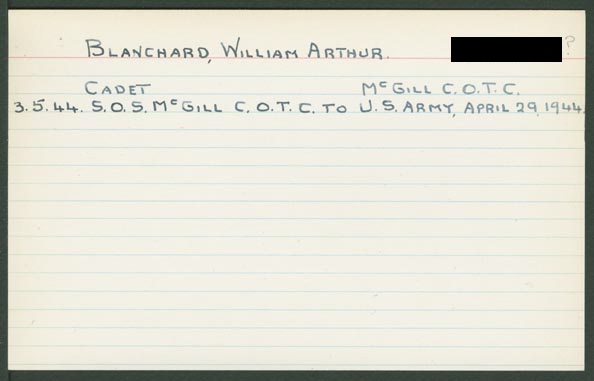 BLANCHARD, WILLIAM ARTHUR. ?
CADET McGILL C.O.T.C.
3.5.44. S.O.S. McGILL C.O.T.C. TO U.S. ARMY, APRIL 29, 1944.